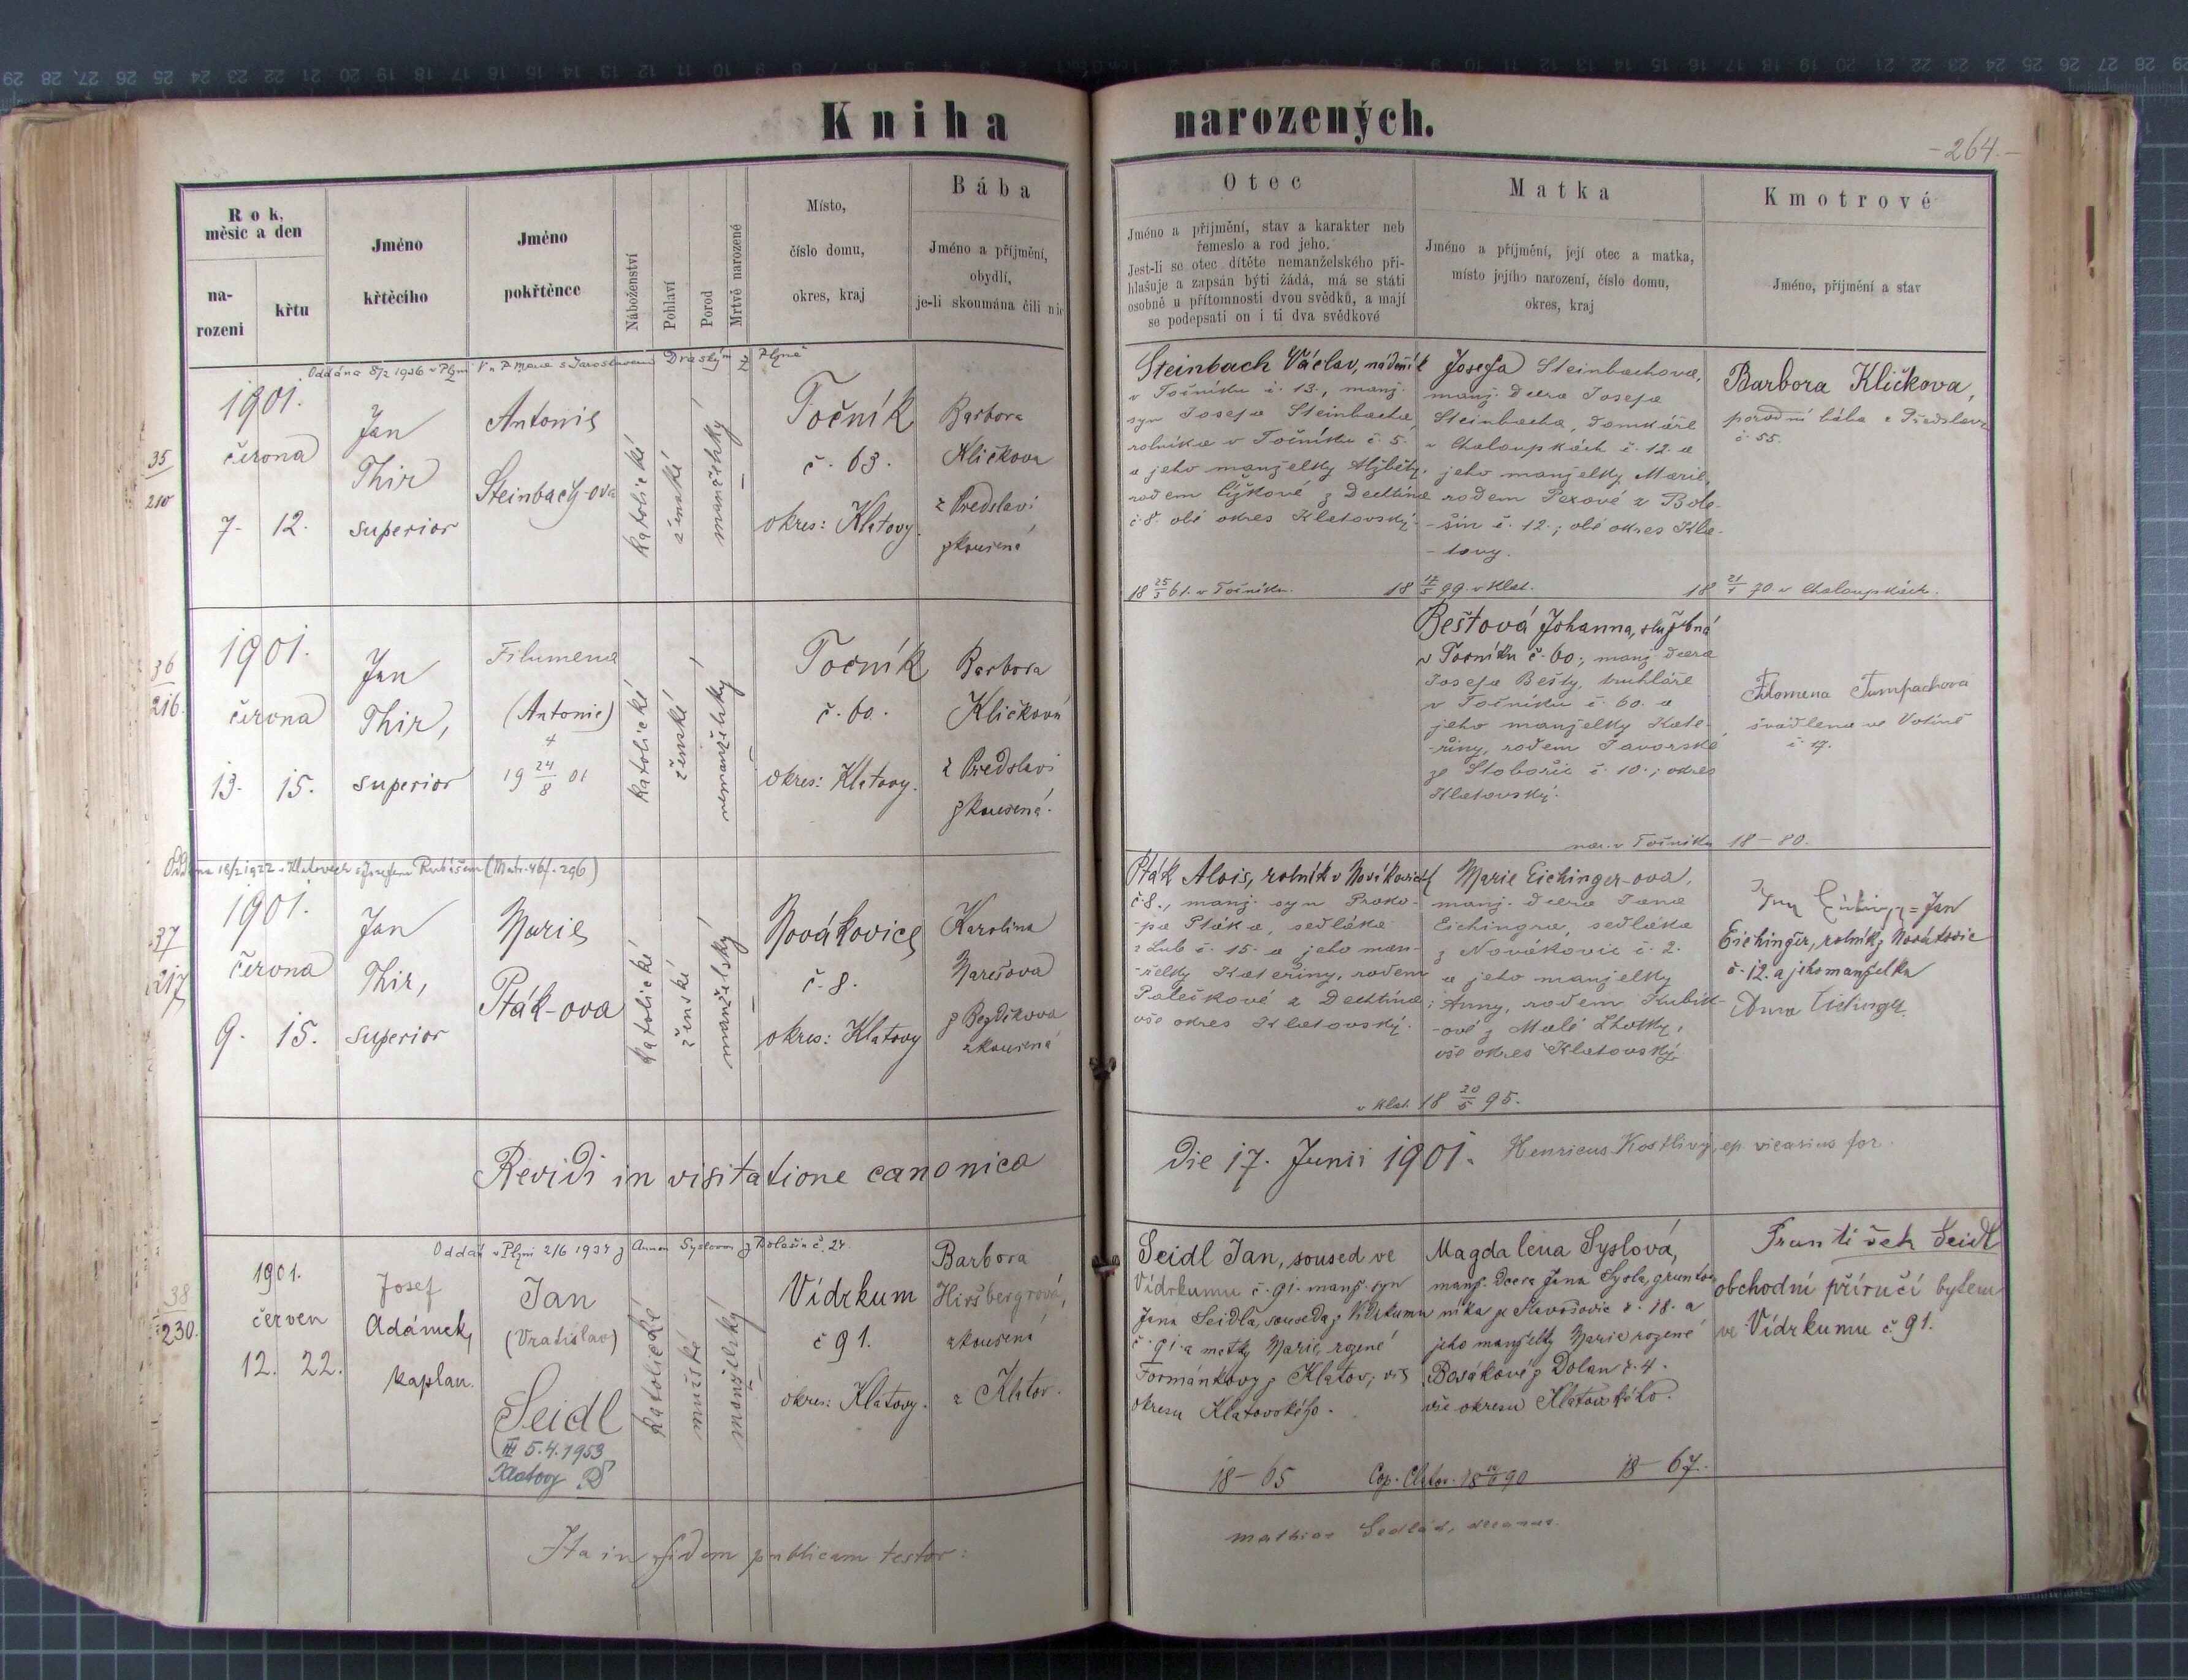 Kniha narozených.
- 264 -
Rok, měsíc a den
narození
křtu
Jméno křtěcího
Jméno pokřtěnce
Náboženství
Pohlaví
Porod
Mrtvě narozené
Místo,
číslo domu,
okres, kraj
Bába
Jméno a příjmění,
obydlí,
je-li skoumána čili nic
Otec
Jméno a příjmění, stav a karakter neb
řemeslo a rod jeho.
Jest-li se otec dítěte nemanželského při-
hlašuje a zapsán býti žádá, má se státi
osobně u přítomnosti dvou svědků, a mají
se podepsati on i ti dva svědkové
Matka
Jméno a příjmění, její otec a matka,
místo jejího narození, číslo domu,
okres, kraj
Kmotrové
Jméno, příjmění a stav
Oddána 8/2 1936 v Plzni s Jaroslavem z Plzně
35
210
1901.
června
7. 12.
Jan
Thir
superior
Antonie
Steinbach-ova
katolické
ženské
manželský
Točník
č. 63.
okres: Klatovy.
Barbora
Kličkova
z Předslavi
zkoušená
Steinbach Václav, nádeník
v Točníku č. 13., manž.
syn Josefa Steinbacha,
rolníka v Točníku č. 5.
a jeho manželky Alžběty,
rodem Čížkové z Dehtína
č. 8. obé okres Klatovský.
18 25/3 61. v Točníku.
Josefa Steinbachova,
manž. dcera Josefa
Steinbacha, domkáře
v Chaloupkách č. 12. a
jeho manželky Marie,
rodem Pexové z Bole-
-šin č. 12.; obé okres Kla-
-tovy.
18 99 v Klat.
18 21/1 70 v Chaloupkách.
Barbora Kličkova,
porodní bába z Předslavi
č. 55.
36
216.
1901.
června
13. 15.
Jan
Thir,
superior
Filumena
(Antonie)
19 24/8 01
katolické
ženské
nemanželský
Točník
č. 60.
okres: Klatovy.
Barbora
Kličkova
z Předslavi
zkoušená.
Beštová Johanna, služebná
v Točníku č. 60., manž. dcera
Josefa Bešty, truhláře
v Točníku č. 60. a
jeho manželky Kate-
-řiny, rodem Javorské
ze Slobořic č. 10.; okres
Klatovský.
nar. v Točníku 18-80.
Filomena Tumpachova
švadlena ve Votíně
č. 17.
Oddána 18/2 1922 v Klatovech s Josefem Rubášem (Matr. 46f. 296)
37
217
1901.
června
9. 15.
Jan
Thir,
superior
Marie
Pták-ova
katolické
ženské
manželský
Novákovice
č. 8.
okres: Klatovy
Karolina
Marešova
z Bezděkova
zkoušená
Pták Alois, rolník v Novákovicích
č. 8., manž. syn Proko-
-pa Ptáka, sedláka
z Lub č. 15. a jeho man-
-želky Kateřiny, rodem
Polečkové z Dehtína;
vše okres Klatovský.
v Klat. 18 20/5 95.
Marie Eichinger-ova,
manž. dcera Jana
Eichingra, sedláka
z Novákovic č. 2.
a jeho manželky
Anny, rodem Kubík-
-ové z Malé Lhotky,
vše okres Klatovský.
= Jan
Eichinger, rolník z Novákovic
č. 12. a jeho manželka
Anna Eichinger.
Revidi in visitatione canonica
die 17. Junii 1901. Henricus Kostlivý, ep. vicarius for.
Oddán v Plzni 2/6 1934 s Annou Syslovou z Bolešin č. 24.
38
230.
1901.
červen
12. 22.
Josef
Adámek,
kaplan.
Jan
(Vratislav)
Seidl
III 5.4.1953
Klatovy
katolické
mužské
manželský
Vídrkum
č 91.
okres: Klatovy.
Barbora
Hiršbergrová,
zkoušená
z Klatov.
Seidl Jan, soused ve
Vídrkumu č. 91. manž. syn
Jana Seidla, souseda z Vídrkumu
č. 91. a matky Marie, rozené
Formánkovy z Klatov; vše
okresu Klatovského.
18-65
Cop. Clatov. 18 90
Magdalena Syslová,
manž. dcera Jana Sysla, gruntov
níka ze Slavošovic č. 18. a
jeho manželky Marie rozené
Bosákové z Dolan č. 4.
vše okresu Klatovského.
18-67.
František Seidl
obchodní příručí bytem
ve Vídrkumu č. 91.
Ita in fidem publicam testor:
Mathias Sedlák, decanus.